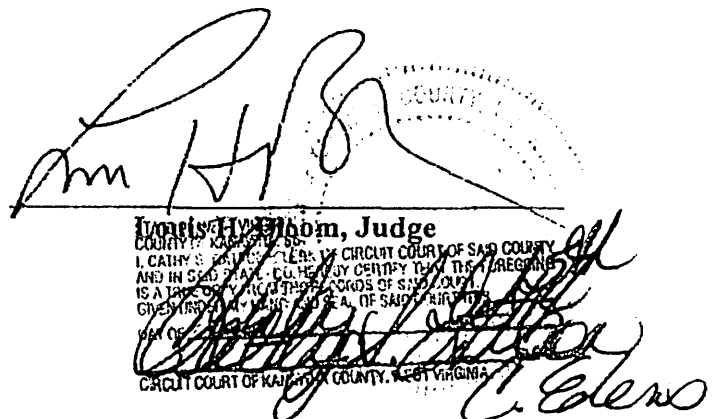 COUNTY
Louis H. Bloom, Judge
COUNTY OF KANAWHA, SS
I, CATHY S. CLERK OF CIRCUIT COURT OF SAID COUNTY
AND IN SAID STATE, DO HEREBY CERTIFY THAT THE FOREGOING
IS A TRUE COPY FROM THE RECORDS OF SAID COURT
GIVEN UNDER MY HAND AND SEAL OF SAID COURT THIS
DAY OF
CIRCUIT COURT OF KANAWHA COUNTY, WEST VIRGINIA
C. Edens